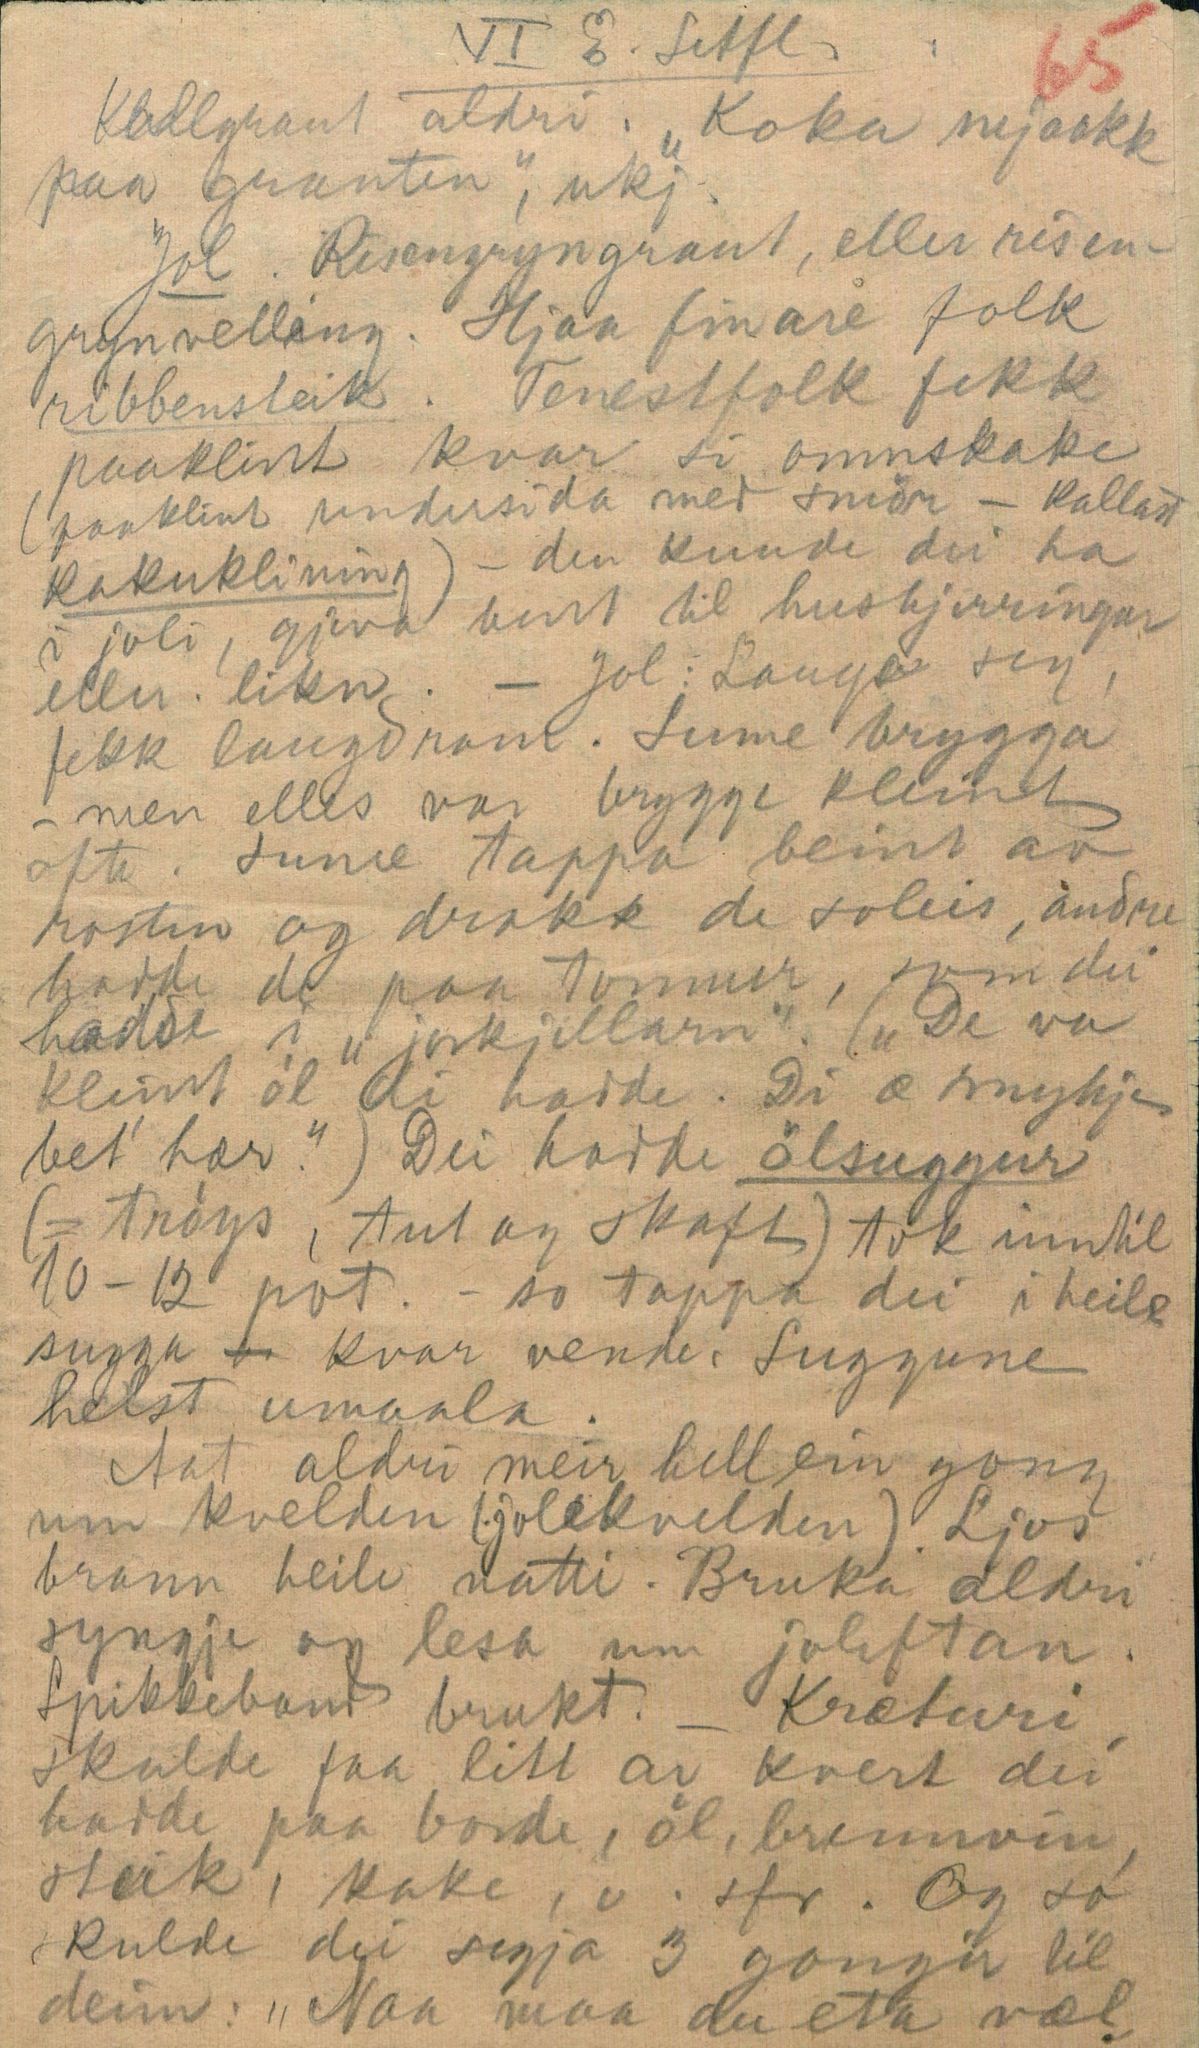 VI E. Setfl. 65
Kallgraut aldri. "Koka mjaakk
paa grauten", ukj.
Jol. Risengryngraut, eller risen-
grynvelling. Hjaa finare folk
ribbensteik. Tenestfolk fekk
paaklint kvar si omnskake
(paaklint undersida med smör - kallast
kakuklining) - den kunde dei ha
i joli, gjeva burt til huskjerringar
eller likn. - Jol: Lauga seg,
fekk laugdram. Sume brygga
- men elles var brygge kleint
ofte. Sume tappa beint av
rosten og drakk de soleis, andre
hadde de paa tonnur, som dei
hadde i "jorkjellarn". ("De va
kleint öl di hadde. Di æ mykje
bet' hær.") Dei hadde ölsuggur
(= tröys, tut og skaft) tok inntil
10-12 pot. - so tappa dei i heile
sugga kvar vende. Suggune
helst umaala.
Aat aldri meir hell ein gong
um kvelden (jolekvelden). Ljos
brann heile natti. Bruka aldri
syngje og lesa um joleftan.
Spikkeband brukt. - Kræturi
skulde faa litt av kvert dei
hadde paa borde, öl, brennvin,
steik, kake, o. sfr. Og so
skulde dei segja 3 gongir til
deim: "Naa maa du eta væl